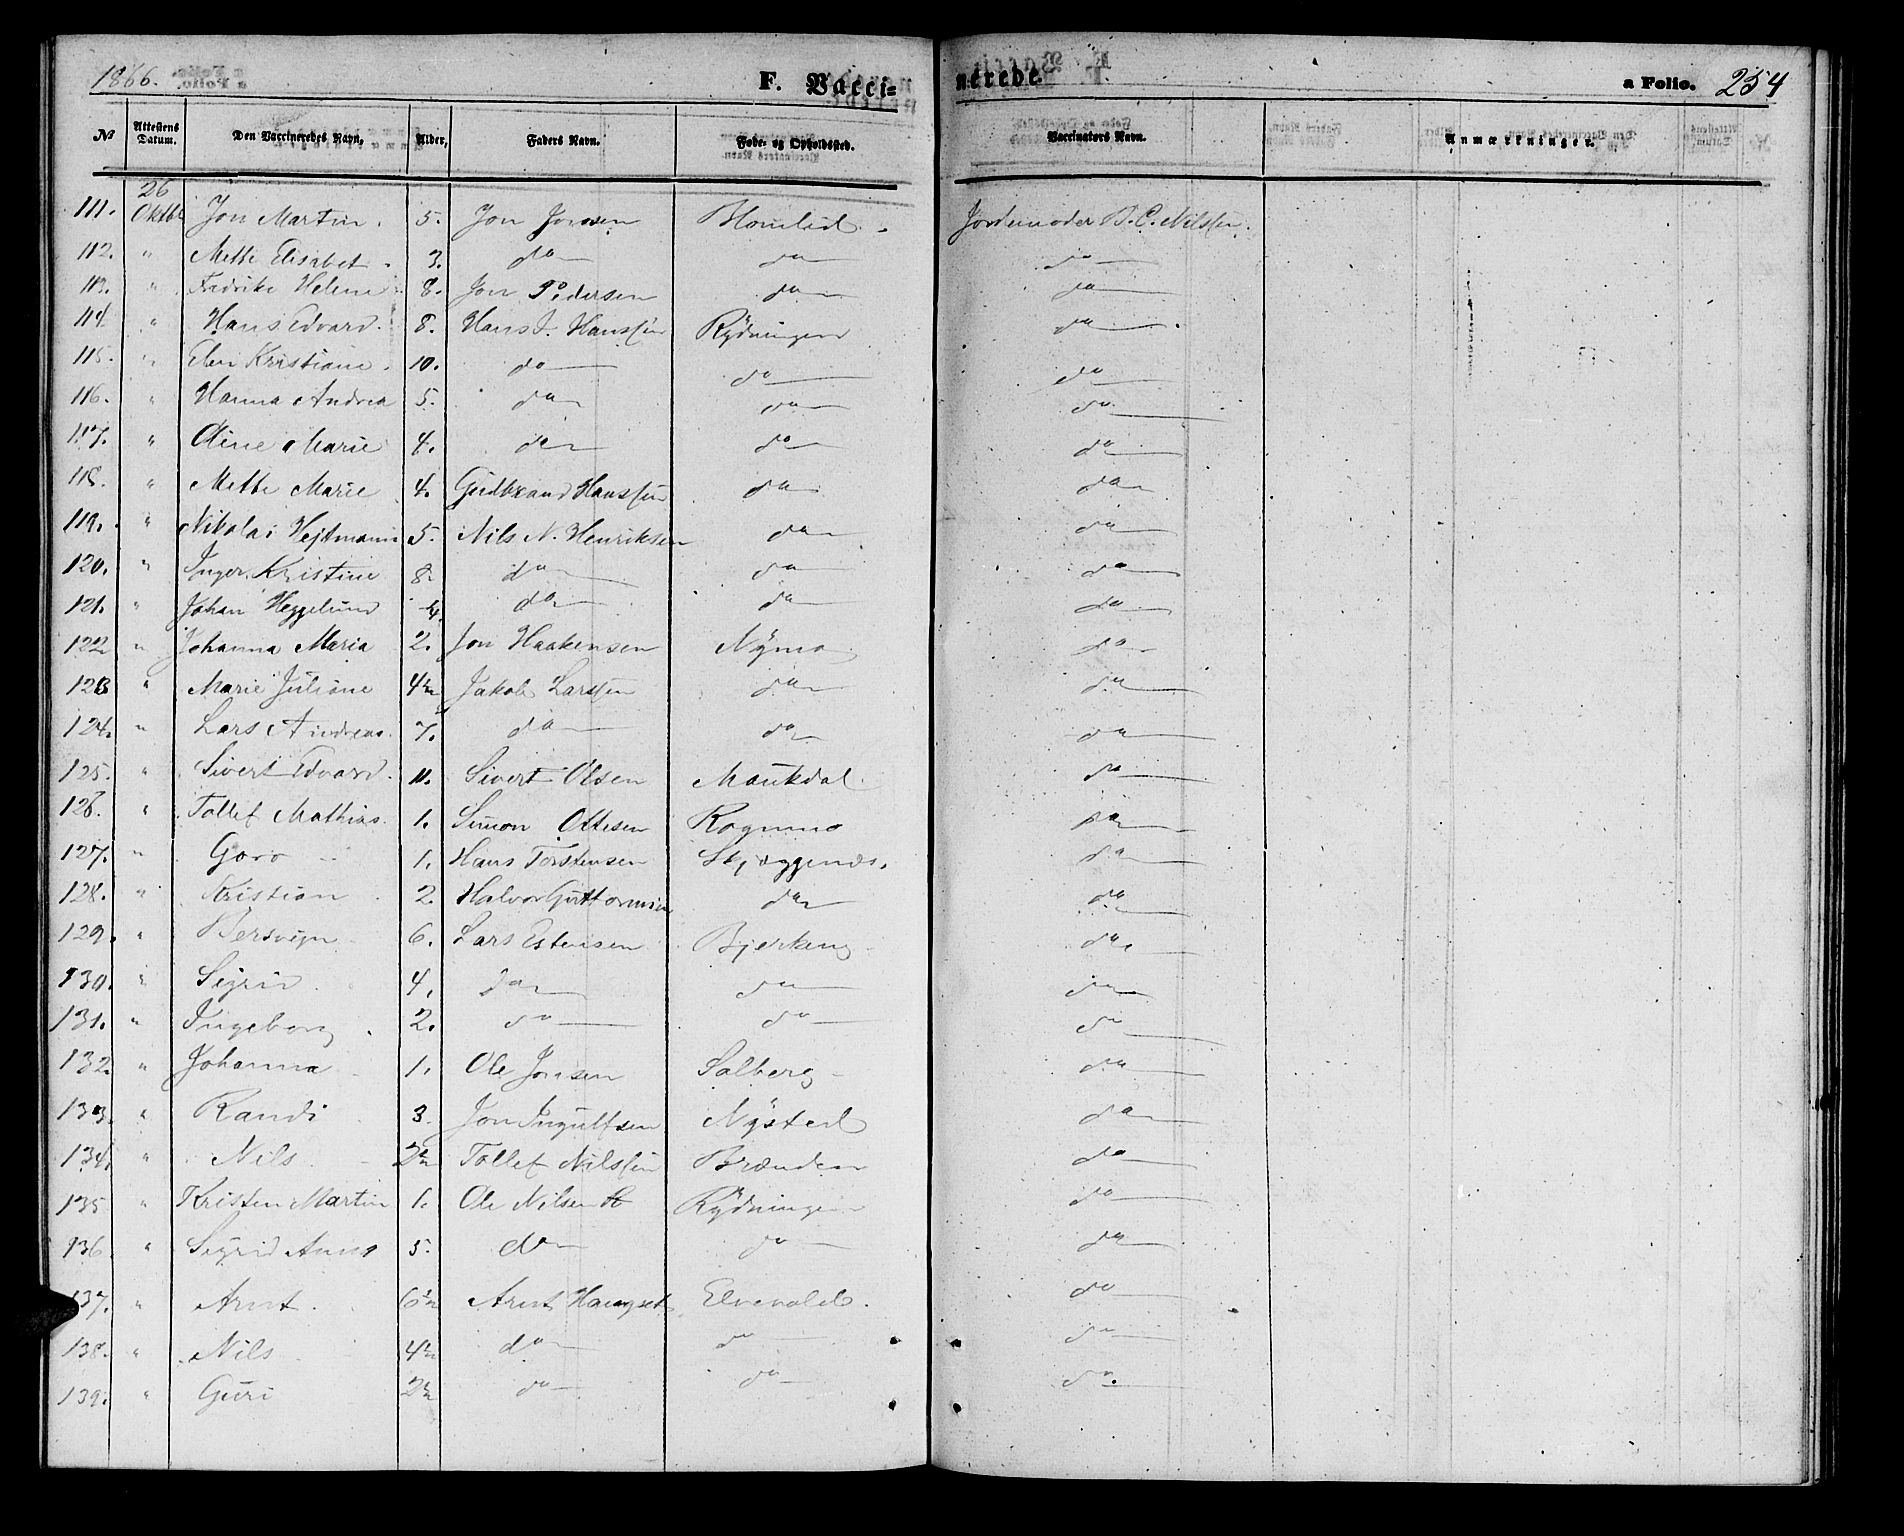 1866. F. Vaccinerede. a Folio. 254
№ Attestens Datum. Den Vaccineredes Navn, Alder, Faders Navn. Føde- og Opholdssted. Vaccinators Navn. Anmærkninger.
111. 26 Oktbr Jon Martin. 5. Jon Jonsen Blomlid. Jordemoder B. C. Nilssen.
112. " Mette Elisabet. 3. do do do
113. " Fredrike Helene 8. Jon Pedersen do do
114. " Hans Edvard. 8. Hans J. Hanssen Rydningen do
115. " Elen Kristiane. 10. do do do
116. " Hanna Andrea 5. do do do
117. " Oline Marie 4. do do do
118. " Mette Marie 4. Gudbrand Hanssen do do
119. " Nikolai Hejtmann 5. Nils N. Henriksen do do
120. " Inger Kristine 8 do do do
121. " Johan Heggelund 4. do do do
122 " Johanna Maria 2. Jon Haakensen Nymo do
123 " Marie Juliane 4½ Jakob Larssen do do
124. " Lars Andreas. 7. do do do
125. " Sivert Edvard. 11. Sivert Olsen Maukdal do
126. " Tollef Mathias. 1. Simon Ottesen Rognmo do
127. " Goro 1. Hans Torstensen Skjæggenæs. do
128. " Kristian 2. Halvor Guttormsen do do
129. " Bersvejn 6. Lars Estensen Bjerkeng do
130. " Sigrid. 4. do do do
131. " Ingeborg. 2. do do do
132. " Johanna 1. Ole Jonsen Solberg do
133. " Randi 3. Jon Ingulfsen Nysted do
134. " Nils. 2½ Tollef Nilssen Brænden do
135 " Kristen Martin 1. Ole Nilsen Rydningen do
136 " Sigrid Anna 5. do do do
137. " Arnt. 6½ Arnt Haugset Elvevold. do
138. " Nils 4½ do do do
139. " Guri 2½ do do do.